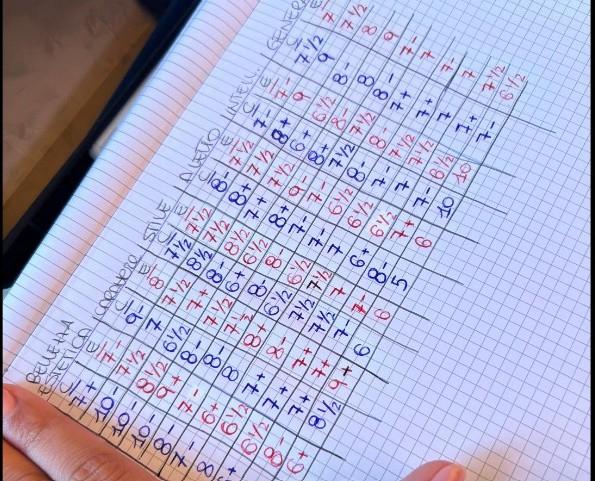 BELLEZZA ESTETICA CARATTERE STILE INTELL. GENERA
C E C E C E C E C E C E
7+ 7- 9- 8 7½ 7½ 8- 7½ 7- 7- 7½ 7
10- 7½ 7 7½ 8½ 7½ 8+ 7½ 8+ 9 9 7½
10- 8½ 6½ 7+ 8- 8½ 7+ 7½ 6+ 6½ 8- 8
10- 9+ 8- 7½ 6+ 6½ 8+ 9- 8+ 8- 8 9
8- 7- 8 7½ 8- 8- 7- 7- 7½ 7½ 8- 7-
7- 6+ 8 8+ 6½ 6½ 7- 6½ 8- 8- 7+ 7-
8 6½ 7+ 8- 7½ 7½ 7 6½ 7- 7½ 7+ 7-
6+ 6½ 7+ 7+ 7½ 7 6+ 6½ 7 7½ 7 7
8- 7+ 7+ 7 7- 8- 7+ 7- 8½ 7+ 7½
6+ 8½ 9+ 6 6 5 6 10 10 7- 6½